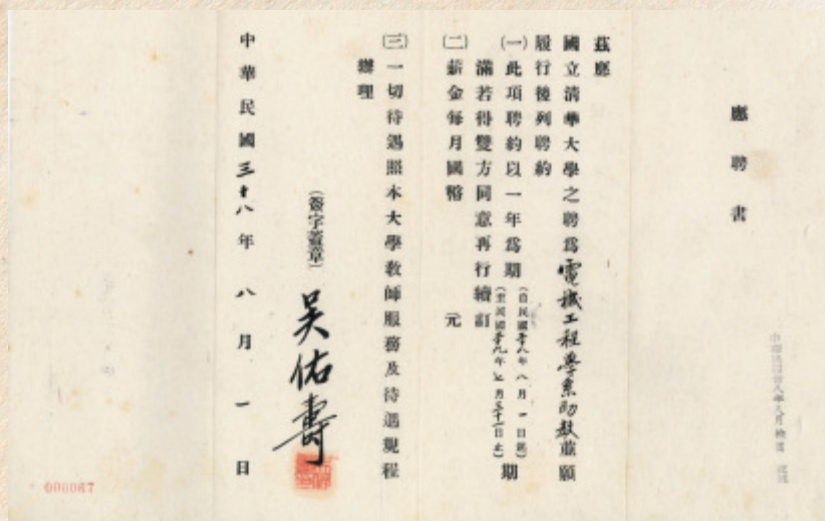 應聘書
茲應
國立清華大學之聘為電機工程學系助教並願
履行後列聘約
(一)此項聘約以一年為期(自民國卅八年八月一日起)(至民國卅九年七月三十一日止)期
滿若得雙方同意再行續訂
(二)薪金每月國幣 元
(三)一切待遇照本大學教師服務及待遇規程
辦理
(簽字蓋章)吳佑壽
中華民國三十八年八月一日
000067